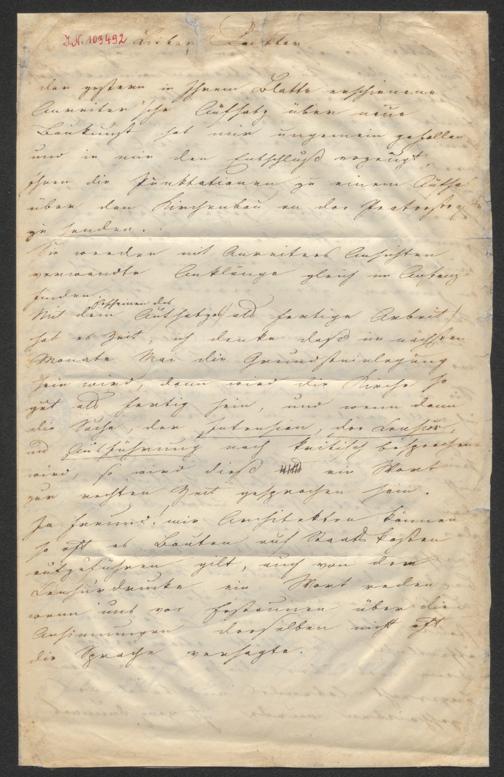 I.N. 109492 Lieber Doktor
der gestern in Ihrem Blatte erschienene
Anreiter'sche Aufsatz über neue
Baukunst hat mir ungemein gefallen
und in mir den Entschluß erzeugt
Ihnen die Punktationen zu einem
über den Kirchenbau in der
zu senden.
Sie werden mit Anreiters Ansichten
verwandte Anklänge gleich im Anfang
finden.
Erscheinen des
Mit dem Aufsatzes als fertige Arbeit
hat es Zeit, ich denke daß im nächsten
Monate Mai die Grundsteinlegung
sein wird, dann wird die Kirche so
gut als fertig sein, und wenn dann
die Sache, der Intention, der Censur,
und Ausführung nach kritisch besprochen
wird, so wird dieß ein Wort
zur rechten Zeit gesprochen sein.
Ja Freund! wir Architekten können
so oft es Bauten auf Staats Kosten
aufzuführen gilt, auch von dem
Censurdrucke ein Wort reden
wenn uns vor Erstaunen über die
Ansinnungen derselben nicht oft
die Sprache versagte.